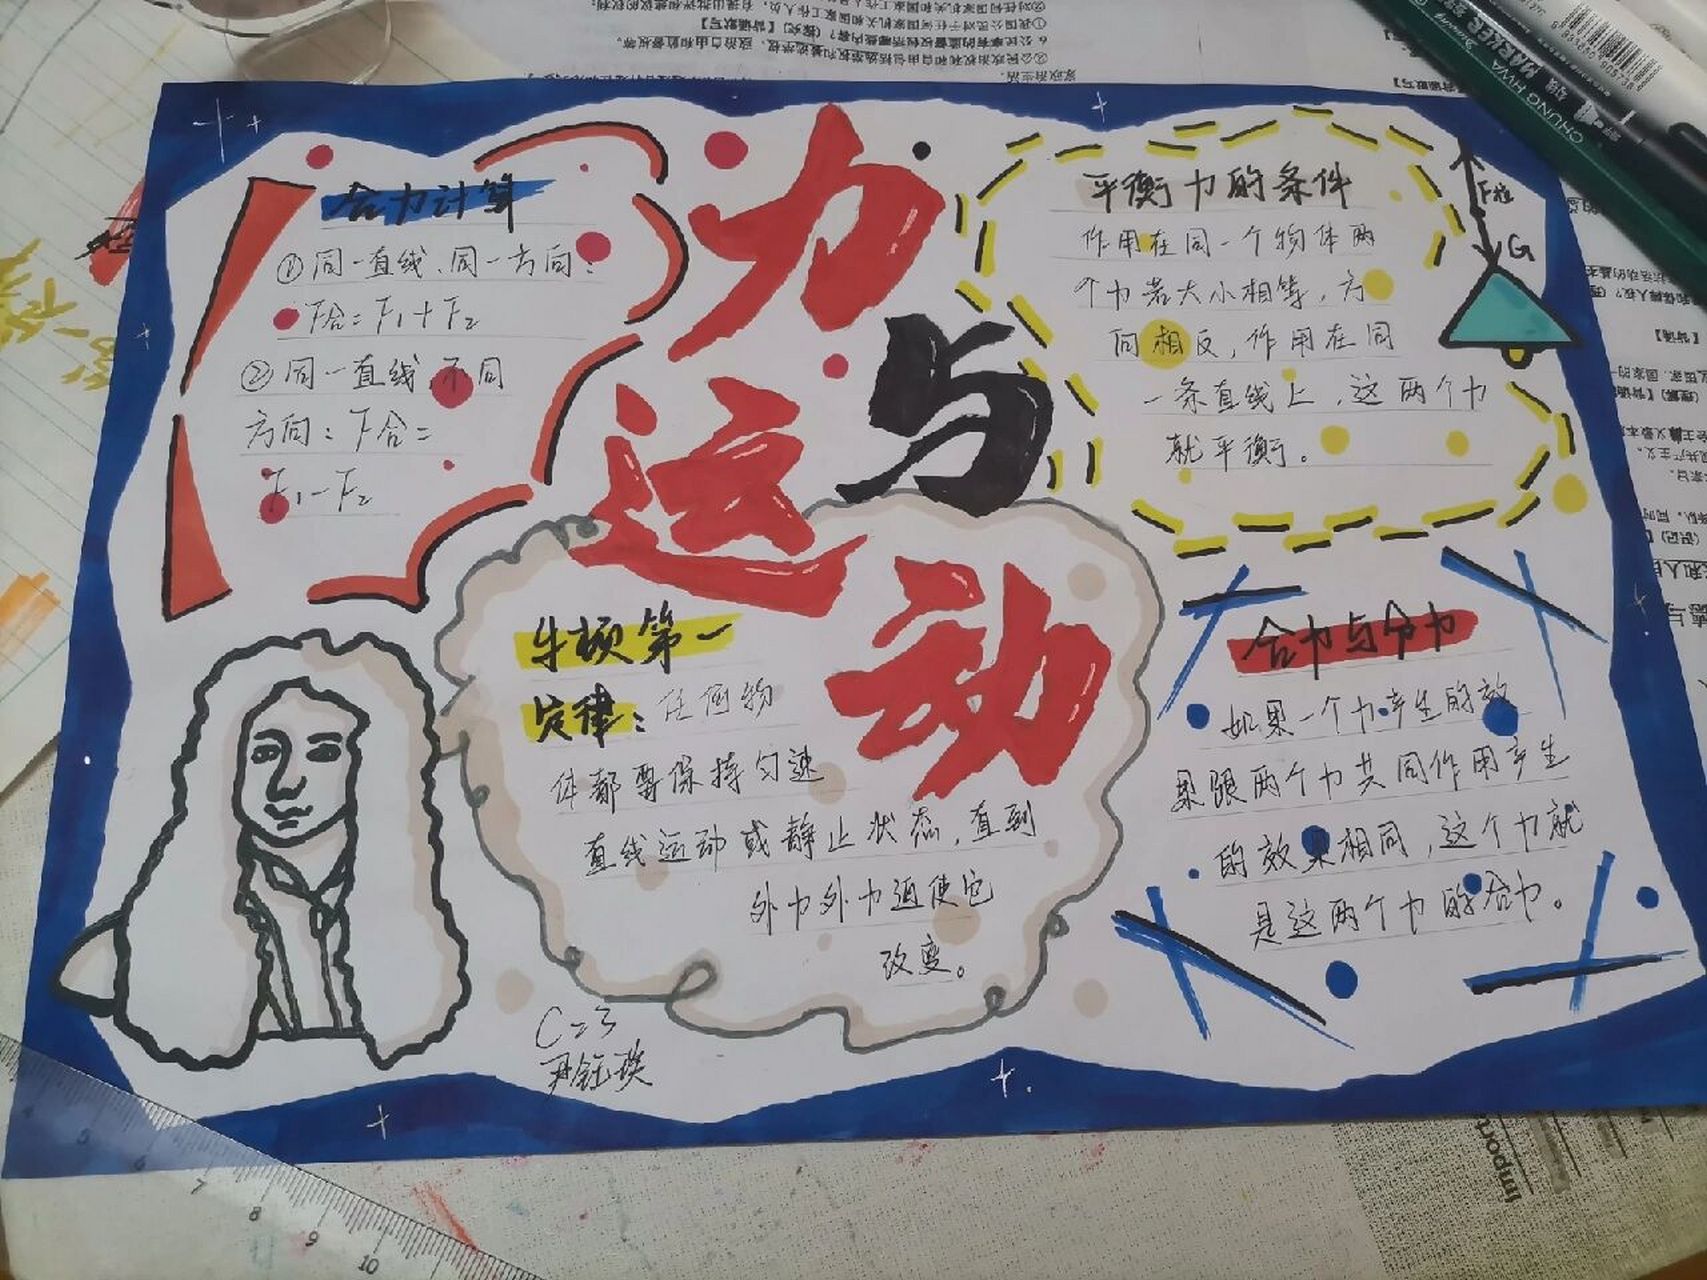 力
与
运
动
合力计算
①同一直线、同一方向：
F合=F₁+F₂
②同一直线,不同
方向：F合=
F₁-F₂
平衡力的条件
作用在同一个物体两
个力若大小相等，方
向相反，作用在同
一条直线上，这两个力
就平衡。
F拉
G
牛顿第一
定律：任何物
体都要保持匀速
直线运动或静止状态，直到
外力外力迫使它
改变。
合力与分力
如果一个力产生的效
果跟两个力共同作用产生
的效果相同，这个力就
是这两个力的合力。
C23
尹钰瑛
MARKER
CHUNG HWA
6
7
8
9
10